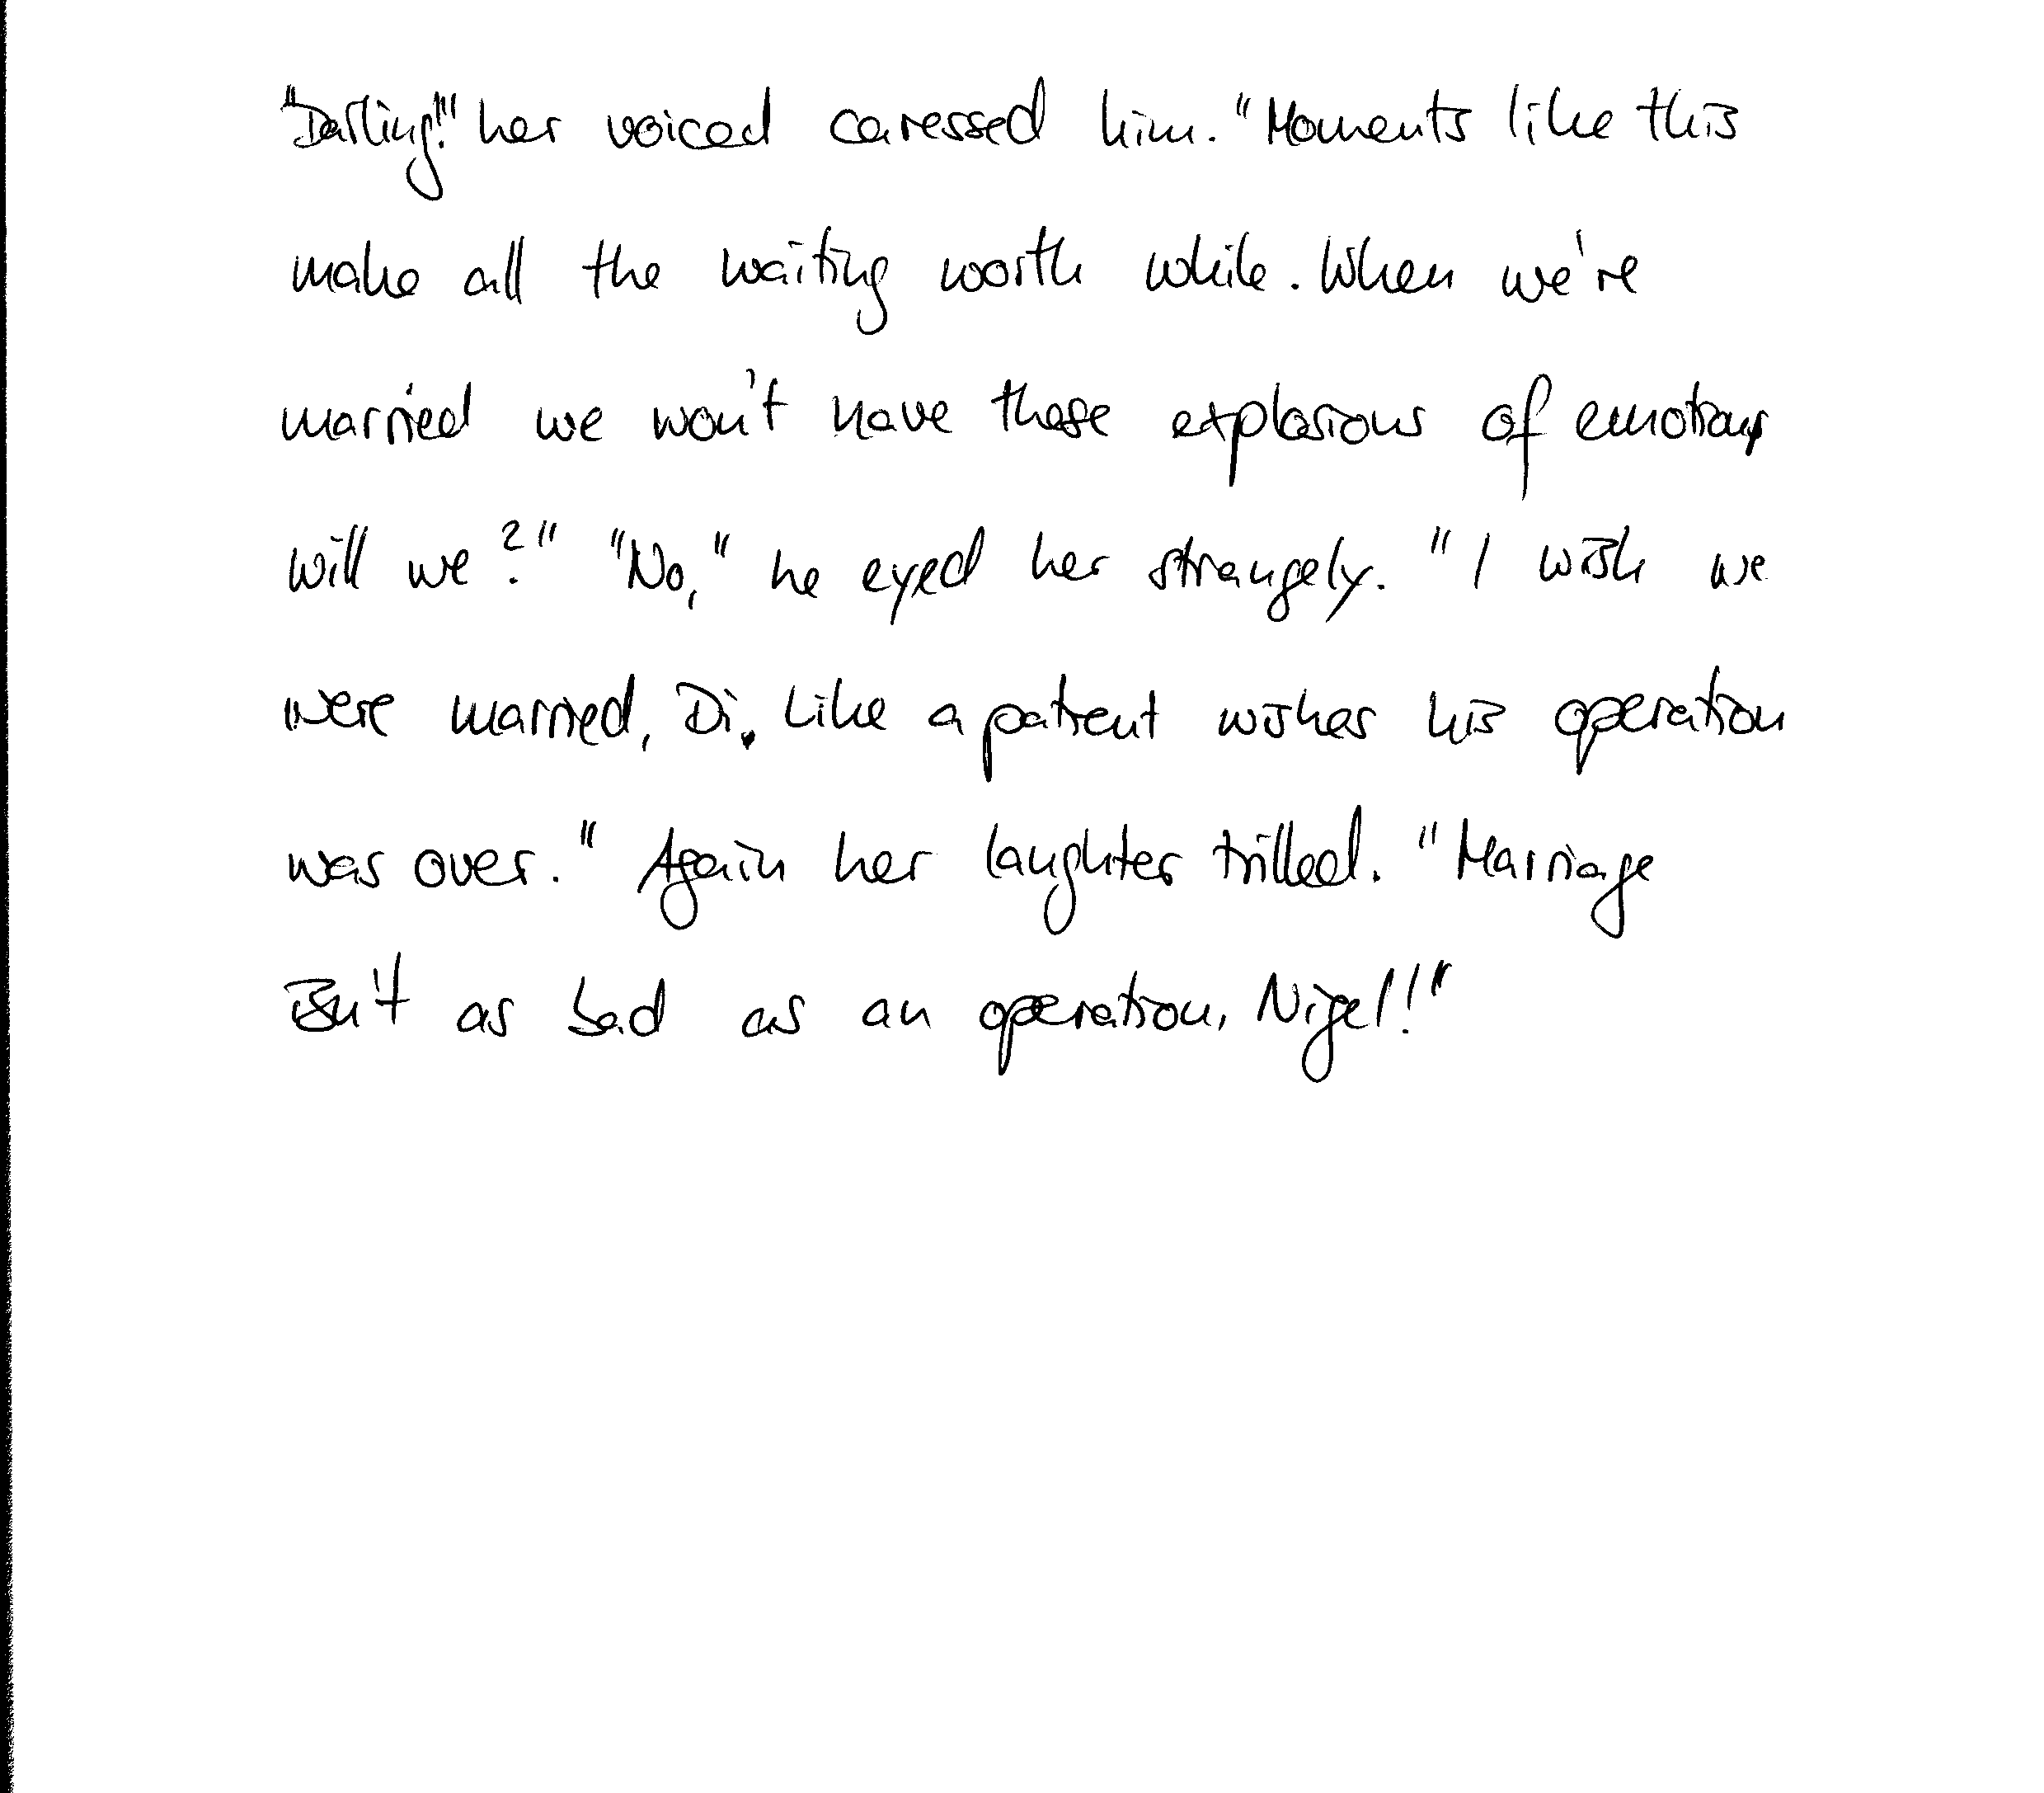 "Darling!" her voiced caressed him. "Moments like this
make all the waiting worth while. When we're
married we won't have these explosions of emotions
will we?" "No," he eyed her strangely. "I wish we
were married, Di. Like a patient wishes his operation
was over." Again her laughter trilled. "Marriage
isn't as bad as an operation, Nigel!"